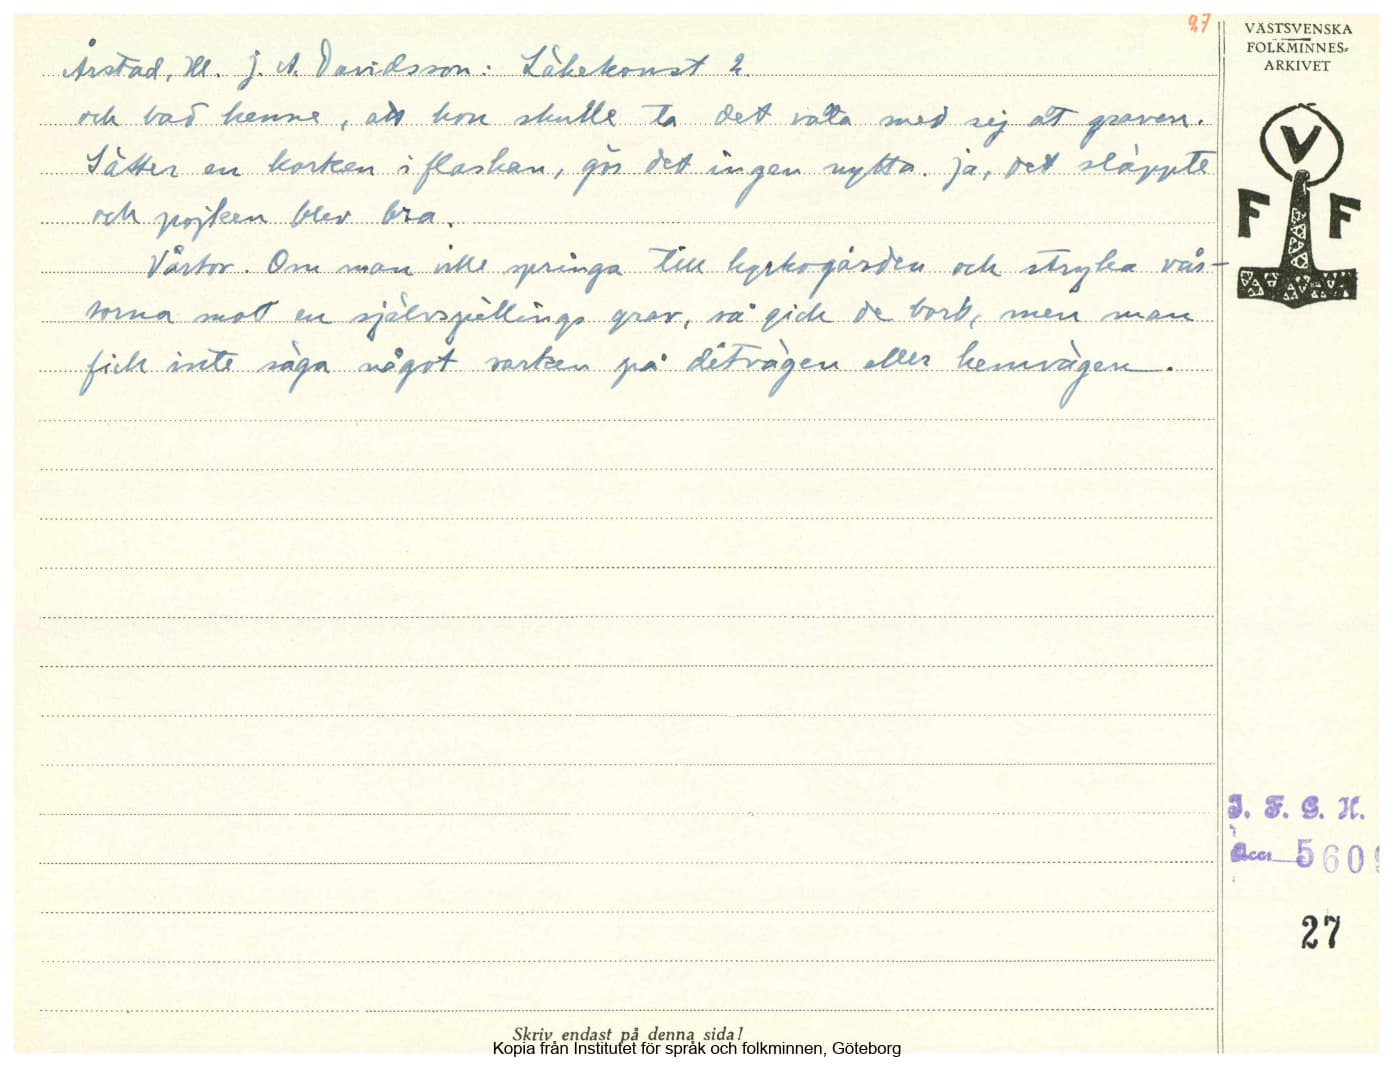 27
VÄSTSVENSKA
FOLKMINNES-
ARKIVET
Årstad, Hl. J. A. Davidsson: Läkekonst 2.
och bad henne, att hon skulle ta det onda med sig åt graven.
Sätter en korken i flaskan, gör det ingen nytta. Ja, det släppte
och pojken blev bra.
Vårtor. Om man ville springa till kyrkogården och stryka vår-
torna mot en självspillings grav, så gick de bort, men man
fick inte säga något varken på ditvägen eller hemvägen.
V
F F
I. F. G. H.
Acc. 5609
27
Skriv endast på denna sida!
Kopia från Institutet för språk och folkminnen, Göteborg